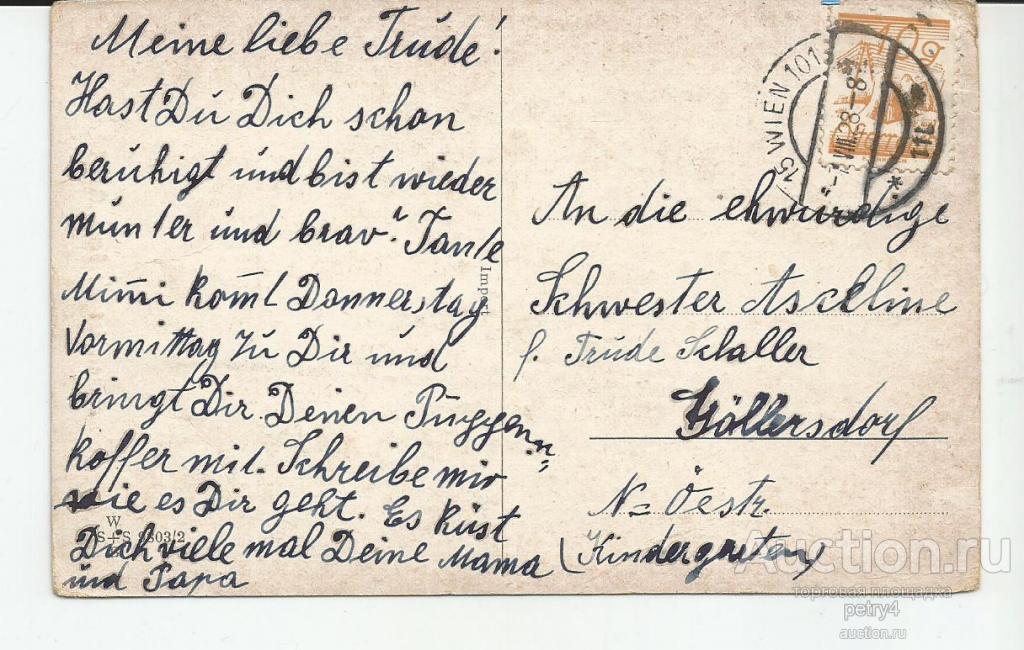 Meine liebe Trude!
Hast Du Dich schon
beruhigt und bist wieder
munter und brav." Tante
Mimi komt Donnerstag
Vormittag zu Dir und
bringt Dir Deinen Puppen=
koffer mit. Schreibe mir
wie es Dir geht. Es küst
Dich viele mal Deine Mama
und Papa
W
S+S 9303/2
Import
15 WIEN 101
VIII.28-8
10g
An die ehwürdige
Schwester Ascelline
f. Trude Schaller
Göllersdorf
N= Östr.
(Kindergarten)
Auction.ru
торговая площадка
petry4
auction.ru